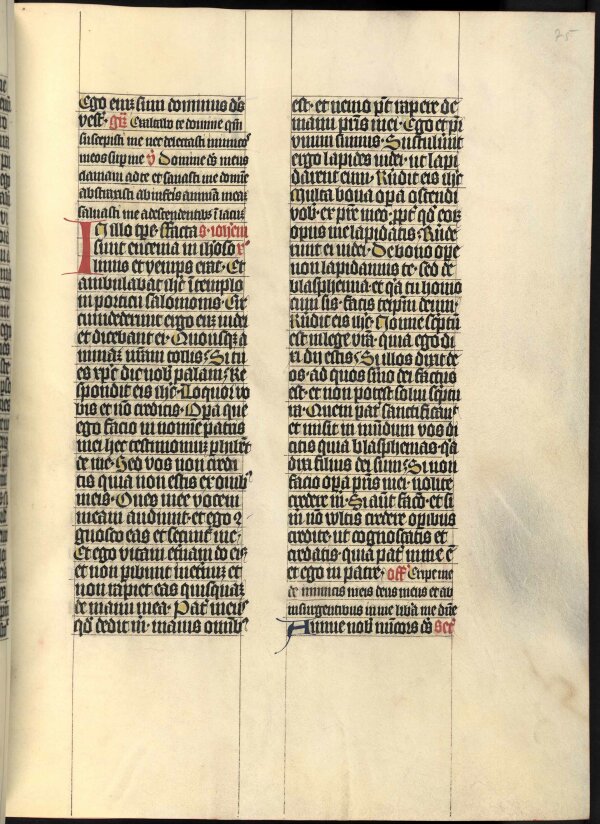 Ego enim sum dominus ds
vest. gr Exaltabo te domine qm
suscepisti me nec delectasti inimicos
meos sup me v Domine ds meus
clamavi ad te et sanasti me domine
abstraxisti ab inferis animam meam
salvasti me a descendentibus i lacum
In illo tpe ffacta s. iohem
sunt encenia in iherosoli
limis et yemps erat. Et
ambulabat ihc i templo
in porticu salomonis. Cir
cumdederunt ergo eum iudei
et dicebant ei. Quousque a
nimam nostram tollis. Si tu
es xpc dic nob palam. Re
spondit eis ihc. Loquor vo
bis et no creditis. Opa que
ego facio in nomine patris
mei hec testimonium phibent
de me. Sed vos non credi
tis quia non estis ex ovib
meis. Oves mee vocem
meam audiunt. et ego co
gnosco eas et sequnt me.
Et ego vitam etnam do eis
et non pibunt ineternum et
non rapiet eas quisquam
de manu mea. Pat meus
qd dedit m. maius omnib
est. et nemo pt rapere de
manu pris mei. Ego et pr
unum sumus. Sustulerunt
ergo lapides iudei. ut lapi
darent eum. Rndit eis ihc
Multa bona opa ostendi
vob. ex pre meo. ppt qd eorum
opus me lapidatis. Rnde
runt ei iudei. De bono ope
non lapidamus te. sed de
blasphemia. et qa tu homo
cum sis. facis teipm deum.
Rndit eis ihc. Nonne scptu
est in lege vra. quia ego di
xi dii estis. Si illos dixit de
os. ad quos smo dei factus
est. et non potest solvi scptu
ra. Quem pat sanctificavit
et misit in mundum vos di
citis quia blasphemas. qa
dixi filius dei sum. Si non
facio opa pris mei. nolite
credere m. Si aut facio. et si
m no vultis credere opibus
credite. ut cognoscatis et
credatis. quia pat in me e
et ego in patre. off Eripe me
de inimicis meis deus meus et ab
insurgentibus in me libera me dne
Annue nob misericors ds scr
25